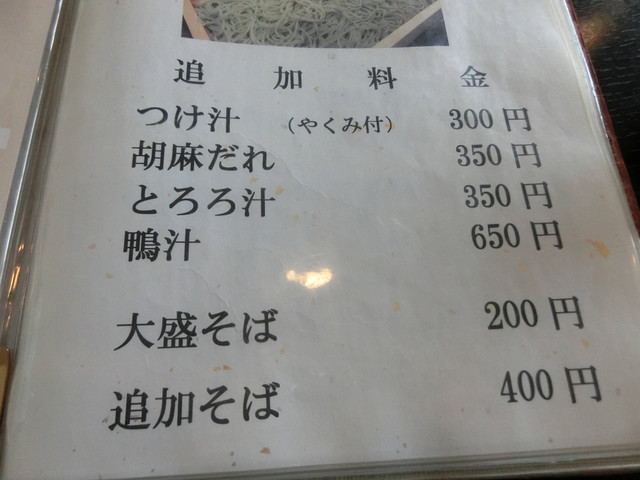 追加料金
つけ汁 （やくみ付） 300円
胡麻だれ 350円
とろろ汁 350円
鴨汁 650円
大盛そば 200円
追加そば 400円